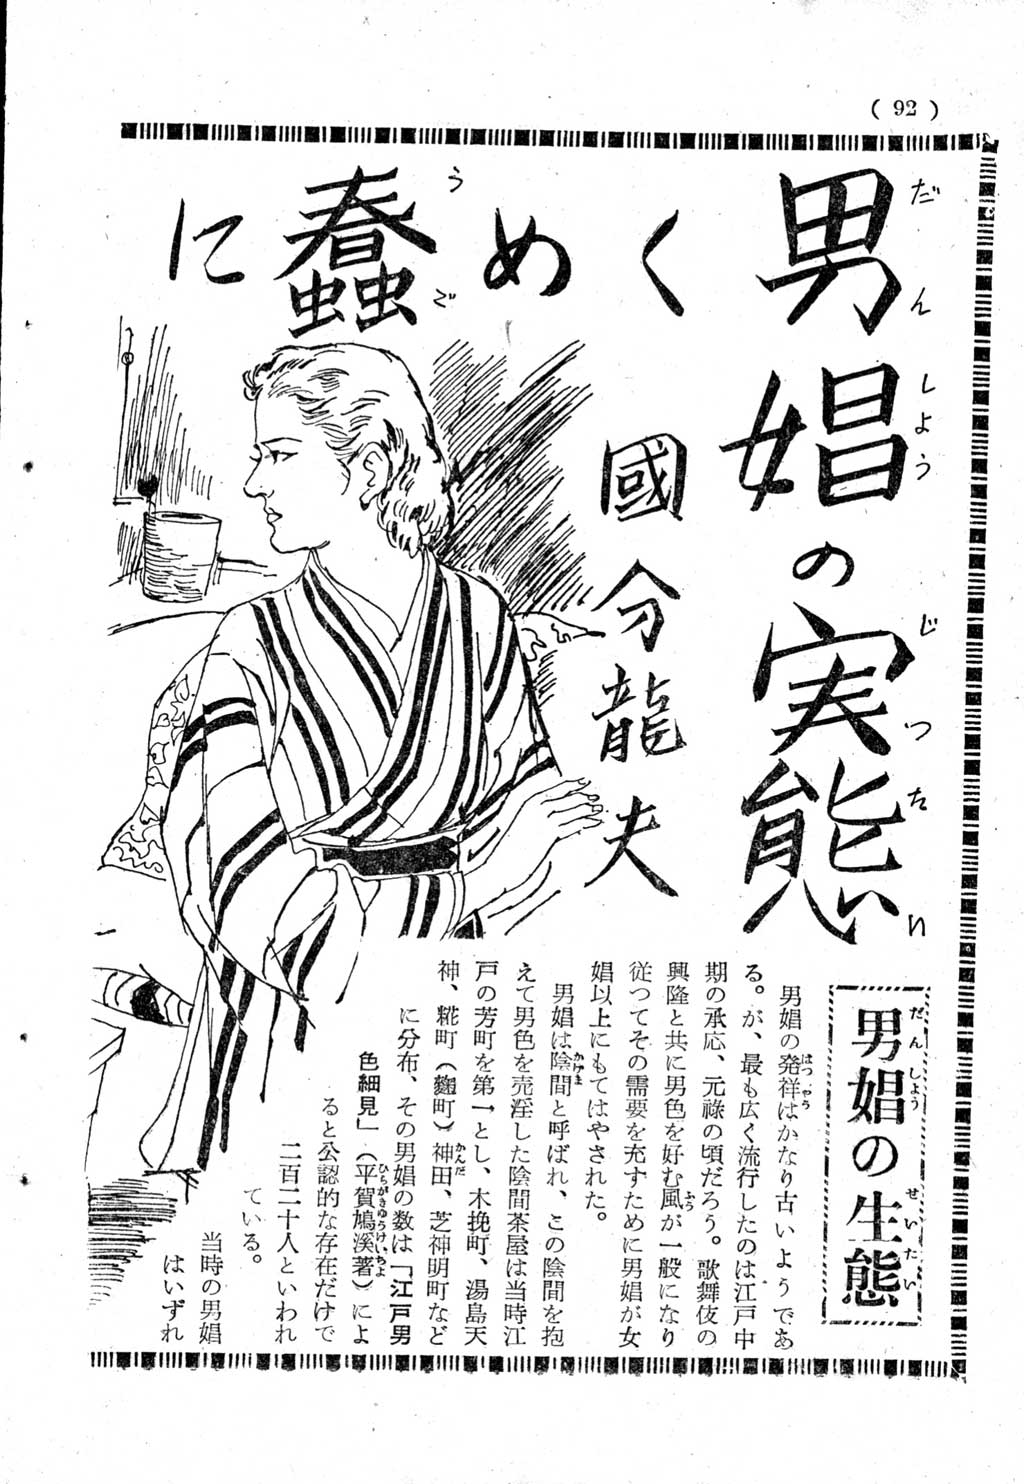 ( 92 )
蠢めくに
うご
男娼の実態
だんしようじつたい
國分龍夫
男娼の生態
だんしようせいたい
男娼の発祥はかなり古いようであ
る。が、最も広く流行したのは江戸中
期の承応、元祿の頃だろう。歌舞伎の
興隆と共に男色を好む風が一般になり
従つてその需要を充すために男娼が女
娼以上にもてはやされた。
男娼は陰間と呼ばれ、この陰間を抱
えて男色を売淫した陰間茶屋は当時江
戸の芳町を第一とし、木挽町、湯島天
神、糀町（麹町）神田、芝神明町など
に分布、その男娼の数は「江戸男
色細見」（平賀鳩溪著）によ
ると公認的な存在だけで
二百二十人といわれ
ている。
当時の男娼
はいずれ